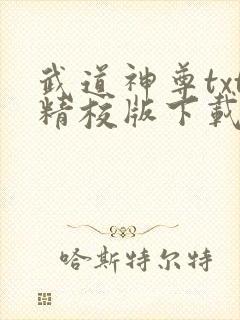 武道神尊txt
精校版下載
哈斯特尔特